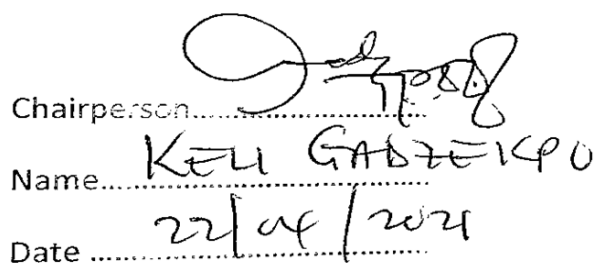 Chairperson....................................
Name.... KELI GADZEKPO
Date .... 22/04/2021